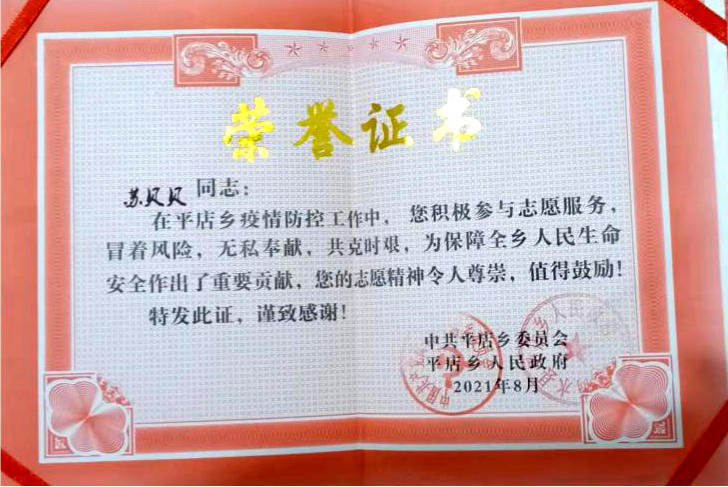 荣誉证书
苏贝贝同志：
在平店乡疫情防控工作中，您积极参与志愿服务，
冒着风险，无私奉献，共克时艰，为保障全乡人民生命
安全作出了重要贡献，您的志愿精神令人尊崇，值得鼓励！
特发此证，谨致感谢！
中共平店乡委员会
平店乡人民政府
2021年8月